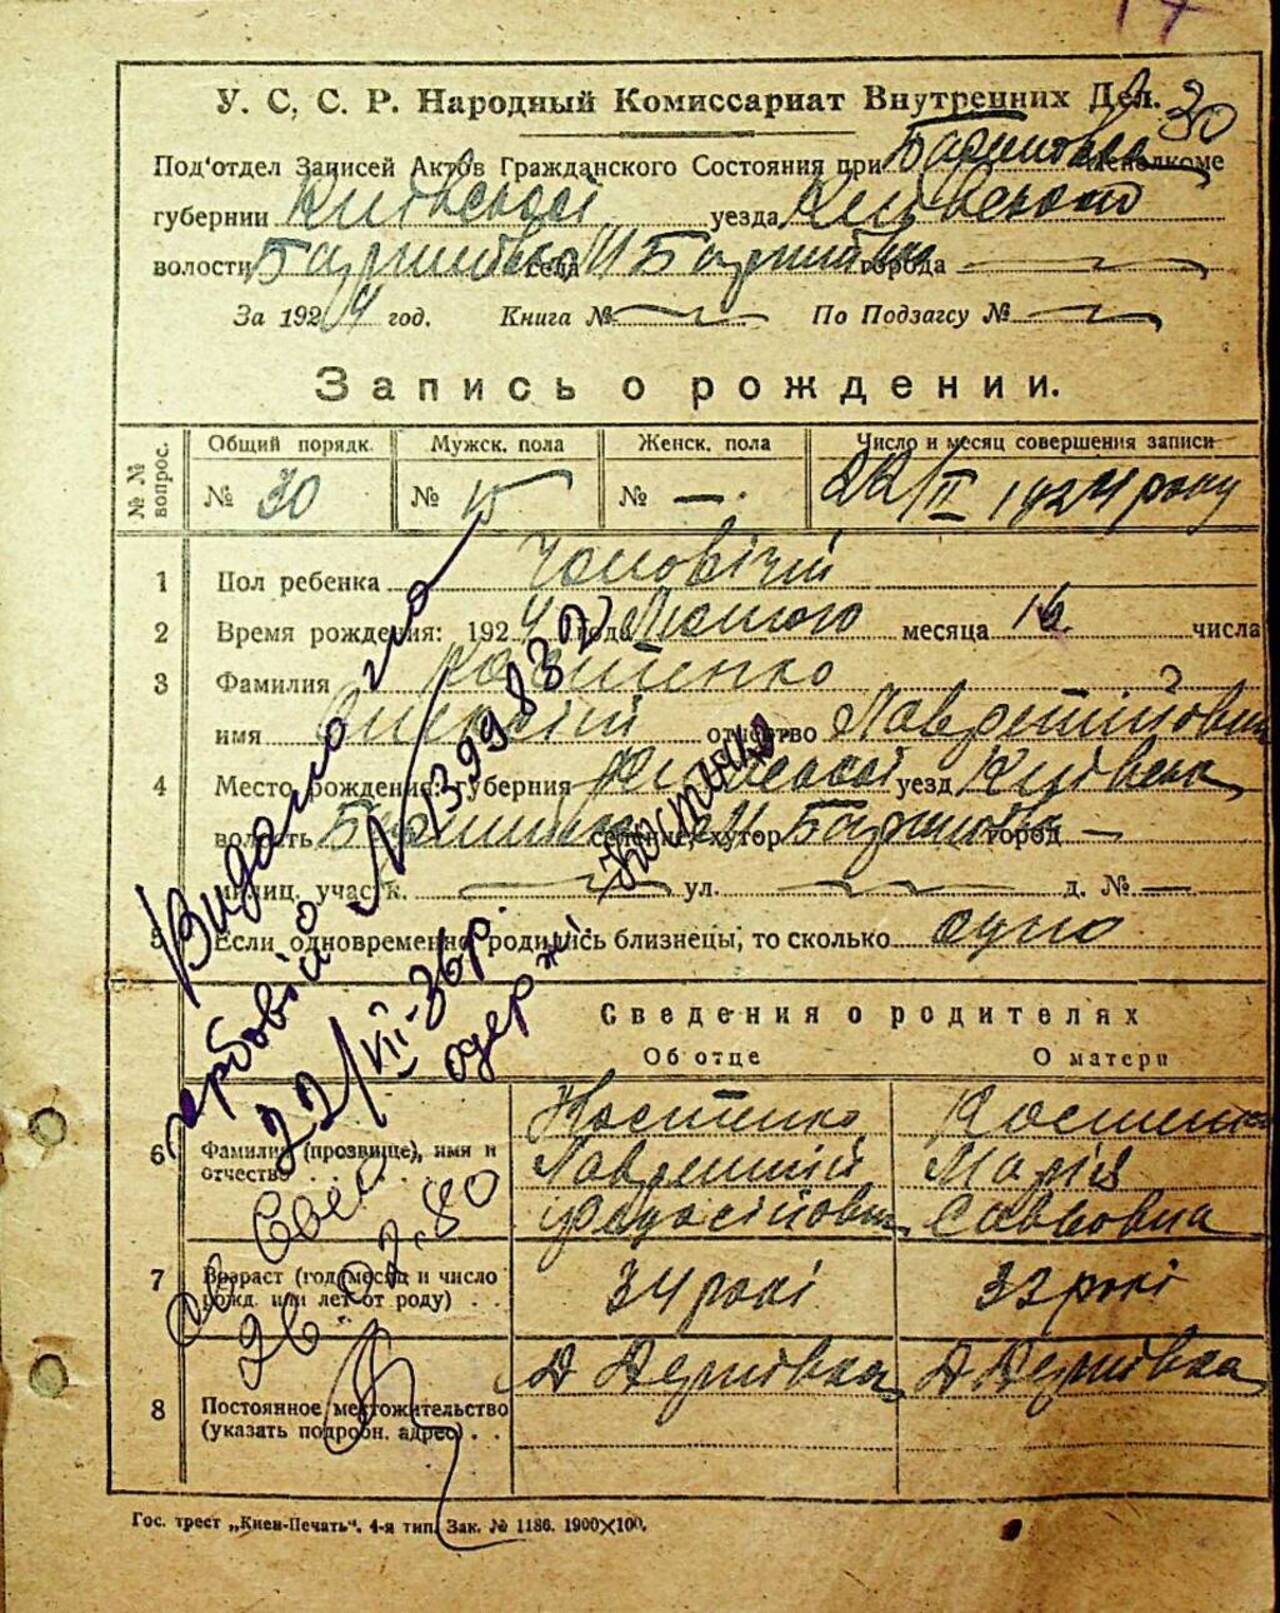 У. С. С. Р. Народный Комиссариат Внутренних Дел. 30
Под'отдел Записей Актов Гражданского Состояния при исполкоме
губернии Київської уезда Київського
волости села М города
За 1924 год. Книга № По Подзагсу №
Запись о рождении.
№ № вопрос.
Общий порядк. Мужск. пола Женск. пола Число и месяц совершения записи
№ 30 № 15 № — 22/II 1924 року
1 Пол ребенка Чоловічий
2 Время рождения: 1924 года Лютого месяца 16 числа
3 Фамилия Костенко
имя Олексій отчество Лаврентійович
4 Место рождения: губерния Київської уезд Київськ
волость селение, хутор М город —
милиц. участк. ул. д. № —
5 Если одновременно родились близнецы, то сколько одно
Сведения о родителях
Об отце О матери
6 Фамилия (прозвище), имя и отчество
Костенко
Лаврентій
Феодосійович
Костенко
Марія
Саввовна
7 Возраст (год, месяц и число рожд. или лет от роду) 34 рокі 33 рокі
8 Постоянное местожительство (указать подробн. адрес)
Гос. трест „Киев-Печать". 4-я тип. Зак. № 1186. 1900×100.
Видано
№ 1399832
22/VII-36р.
Костенко
26.02.80